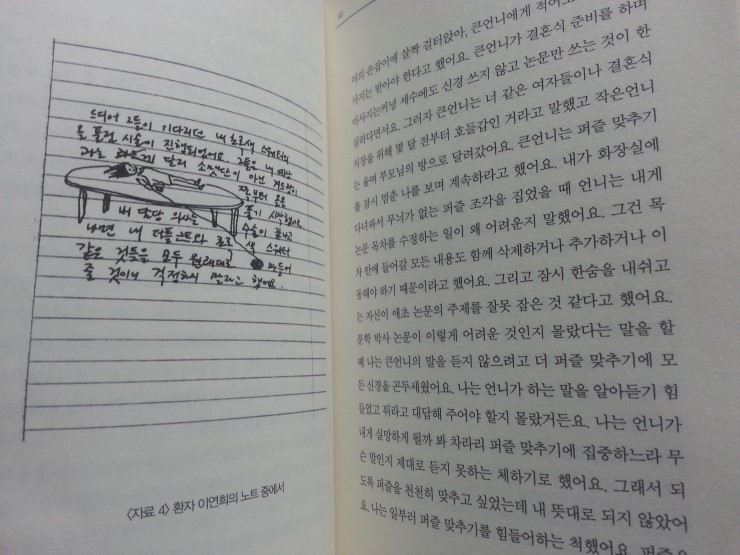 드디어 그들이 기다리던 내 초록색 스웨터의
올 풀림 시술이 진행되었어요. 그들은 내 예상
과는 다르게 달리 소맷단이 아닌 겨드랑이
쪽부터 올을
풀기 시작했어요.
내 담당 의사는 수술이 끝나고
나면 내 더플코트와 초록색 스웨터
같은 것들을 모두 원래대로 만들어
줄 것이니 걱정하지 말라고 했어요.
〈자료 4〉 환자 이연희의 노트 중에서
손잡이에 살짝 걸터앉아, 큰언니에게
사지는 받아야 한다고 했어요. 큰언니가 결혼식 준비를 하며
마사지는커녕 세수에도 신경 쓰지 않고 논문만 쓰는 것이 한
심하다면서요. 그러자 큰언니는 너 같은 여자들이나 결혼식
치장을 위해 몇 달 전부터 호들갑인 거라고 말했고 작은언니
는 울며 부모님의 방으로 달려갔어요. 큰언니는 퍼즐 맞추기
를 잠시 멈춘 나를 보며 계속하라고 했어요. 내가 화장실에
다녀와서 무늬가 없는 퍼즐 조각을 집었을 때 언니는 내게
논문 목차를 수정하는 일이 왜 어려운지 말했어요. 그건 목
차 안에 들어갈 모든 내용도 함께 삭제하거나 추가하거나 이
동해야 하기 때문이라고 했어요. 그리고 잠시 한숨을 내쉬고
는 자신이 애초 논문의 주제를 잘못 잡은 것 같다고 했어요.
문학 박사 논문이 이렇게 어려운 것인지 몰랐다는 말을 할
때 나는 큰언니의 말을 듣지 않으려고 더 퍼즐 맞추기에 모
든 신경을 곤두세웠어요. 나는 언니가 하는 말을 알아듣기 힘
들었고 뭐라고 대답해 주어야 할지 몰랐거든요. 나는 언니가
내게 실망하게 될까 봐 차라리 퍼즐 맞추기에 집중하느라 무
슨 말인지 제대로 듣지 못하는 체하기로 했어요. 그래서 되
도록 퍼즐을 천천히 맞추고 싶었는데 내 뜻대로 되지 않았어
요. 나는 일부러 퍼즐 맞추기를 힘들어하는 척했어요.